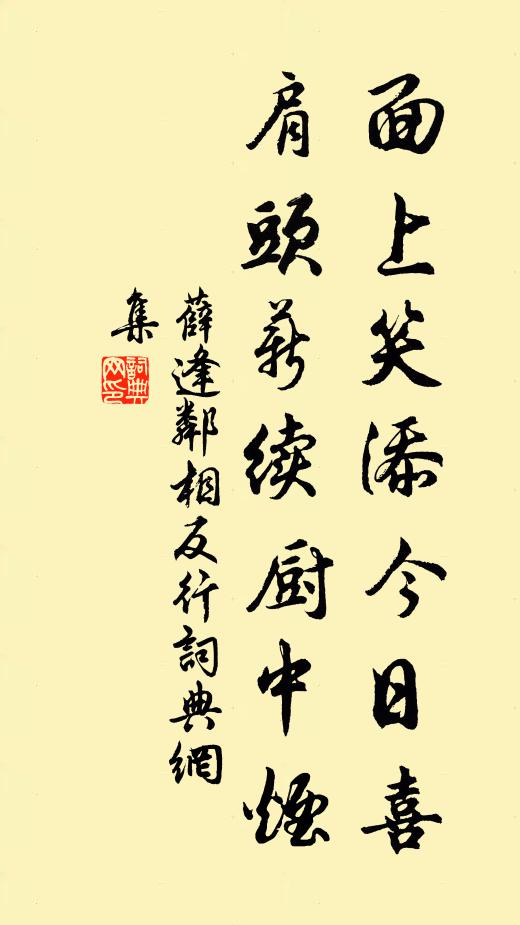 面上笑添今日喜
肩頭薪续厨中煙
薛逢鄰相反行詞典網
集
詞典
网印